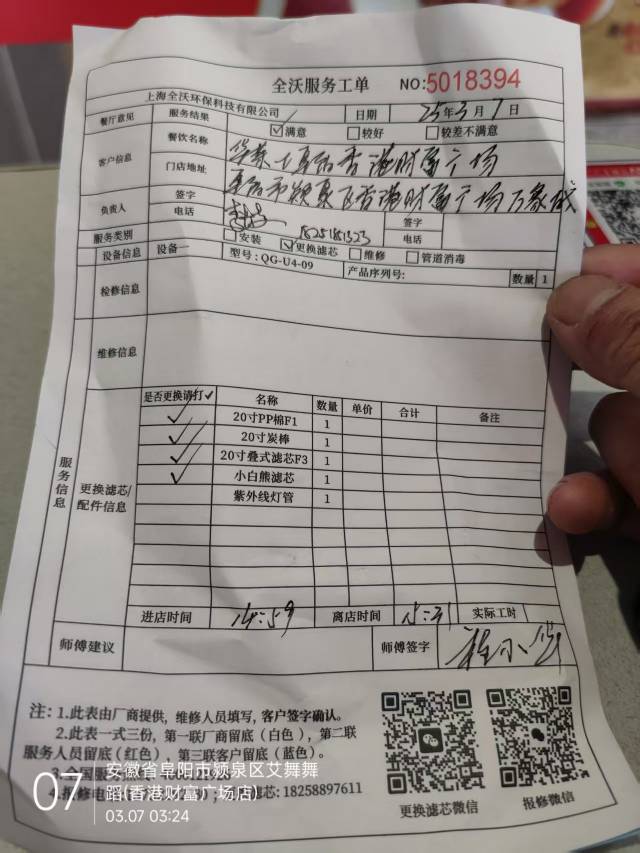 全沃服务工单 NO:5018394
上海全沃环保科技有限公司
餐厅意见 服务结果 日期 25年3月7日
✓满意 较好 较差不满意
客户信息 餐饮名称 香港财富广场
门店地址 香港财富广场万象城
负责人 签字 签字
电话 电话
服务类别 安装 ✓更换滤芯 维修 管道消毒
设备信息 设备一 型号:QG-U4-09 产品序列号: 数量 1
检修信息
维修信息
服务信息
更换滤芯/配件信息
是否更换请打✓ 名称 数量 单价 合计 备注
✓ 20寸PP棉F1 1
✓ 20寸炭棒 1
✓ 20寸叠式滤芯F3 1
✓ 小白熊滤芯 1
紫外线灯管 1
进店时间 14:59 离店时间 15:31 实际工时
师傅建议 师傅签字
注:1.此表由厂商提供,维修人员填写,客户签字确认。
2.此表一式三份,第一联厂商留底(白色),第二联
服务人员留底(红色),第三联客户留底(蓝色)。
3.全国服
4.报修电 滤芯: 18258897611
更换滤芯微信 报修微信
07 安徽省阜阳市颍泉区艾舞舞
蹈(香港财富广场店)
03.07 03:24